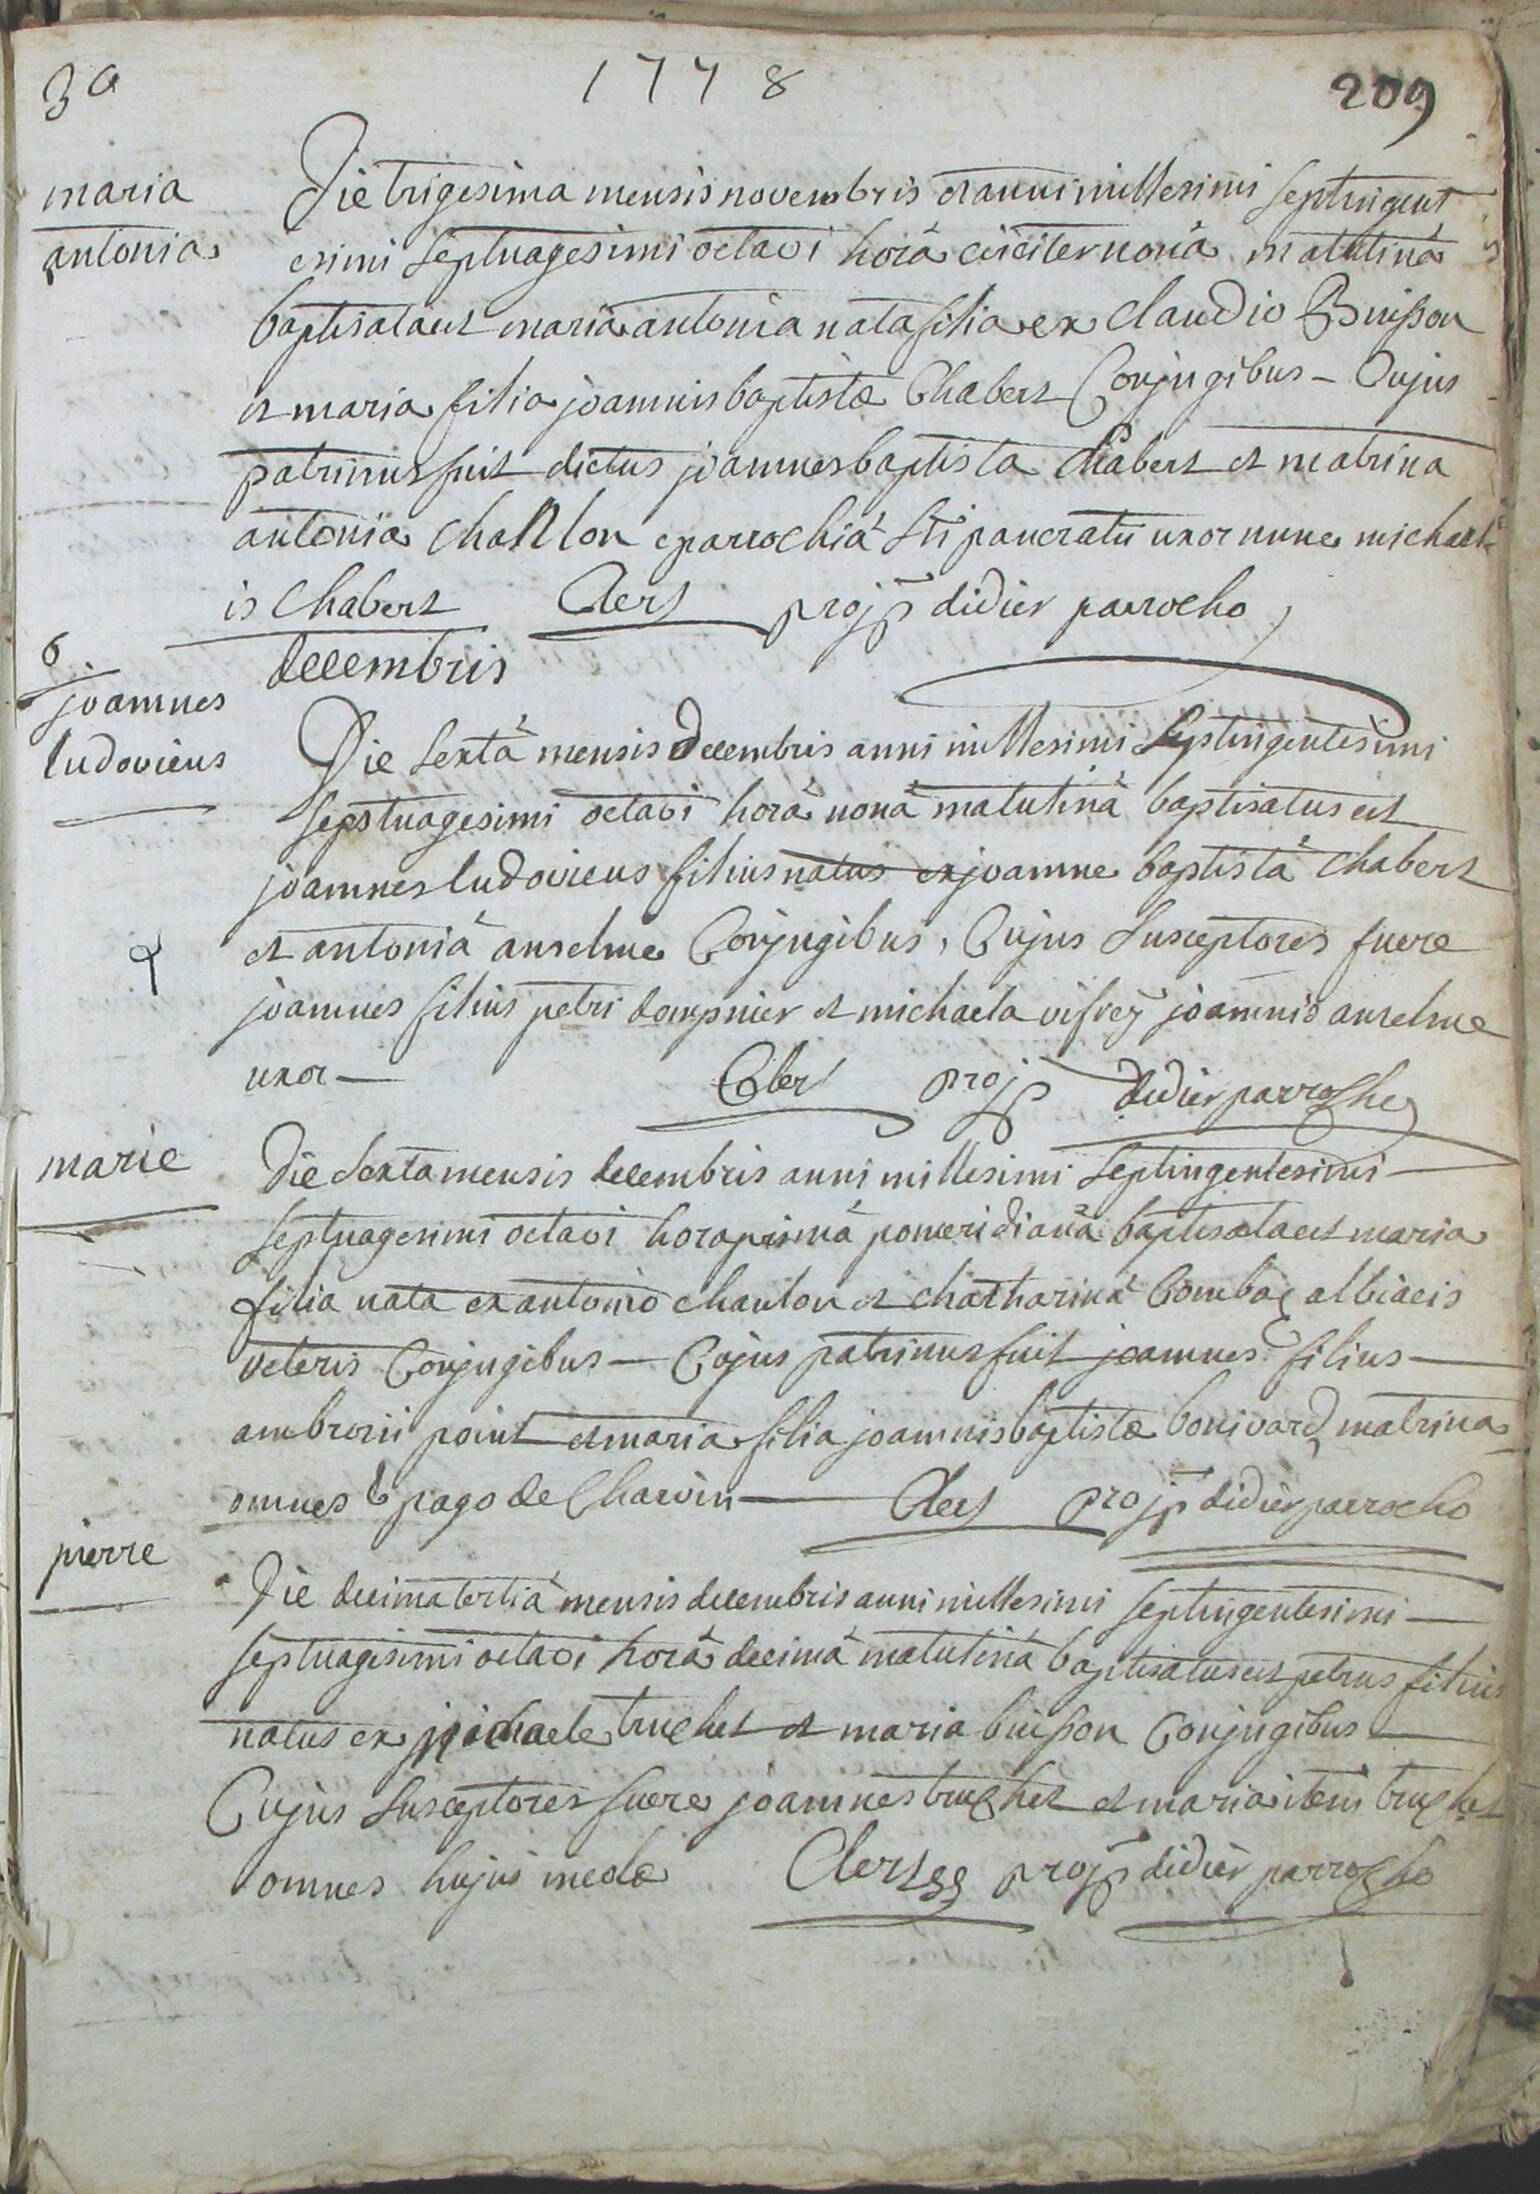 30
1778
209
maria
antonia
Die trigesima mensis novembris et anni millesimi septingent
esimi septuagesimi octavi horâ circiter nonâ matutinâ
baptisata est maria antonia nata filia ex claudio Buisson
et maria filia joannis baptistæ Chabert Conjugibus – Cujus
patrinus fuit dictus joannes baptista Chabert et matrina
antonia chaillon parrochiâ Sti pancratii uxor nunc michael
is Chabert Clert pro jp didier parrocho
6
joannes
ludovicus
decembris
Die sextâ mensis decembris anni millesimi septingentesimi
septuagesimi octavi horâ nonâ matutinâ baptisatus est
joannes ludovicus filius natus ex joanne baptistâ Chabert
et antoniâ anselme Conjugibus, Cujus susceptores fuere
joannes filius petri dompnier et michaela vifrey joannis anselme
uxor — Cler pro jp didier parrocho
marie
Die sexta mensis decembris anni millesimi septingentesimi –
septuagesimi octavi hora primâ pomeridianâ baptisata est maria
filia nata ex antonio chaulon et chatharinâ Combaz albiacis
veteris Conjugibus — Cujus patrinus fuit joannes filius —
ambrosii point et maria filia joannis baptistæ bonivard matrina
omnes è pago de Charvin — Clert pro jp didier parrocho
pierre
Die decima tertiâ mensis decembris anni millesimi septingentesimi —
septuagesimi octavi horâ decimâ matutinâ baptisatus est petrus filius
natus ex michaele truchet et maria buisson Conjugibus —
Cujus susceptores fuere joannes truchet et maria item truchet
omnes hujus Clert pro jp didier parrocho